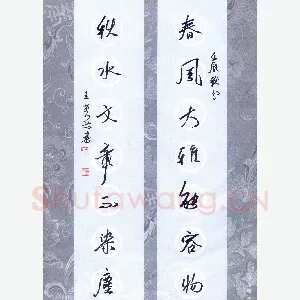 春风大雅能容物
秋水文章不染尘
Shufawang.CN